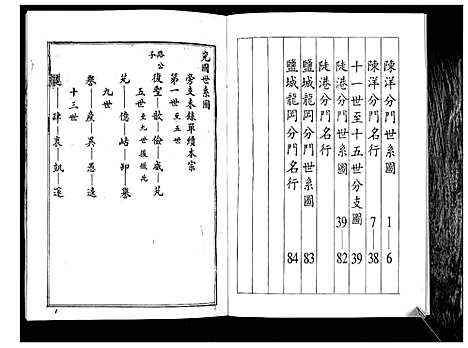 陳洋分門世系圖 1—6
陳洋分門名行 7—38
十一世至十五世分支圖 39
陡港分門世系圖 39—82
陡港分門名行
鹽城龍岡分門世系圖 83
鹽城龍岡分門名行 84
兗國世系圖
旁支未錄單續本宗
第一世 至五世
路公子 復聖—歆—儉—威—芃
五世 至九世
芃—億—岵—卸—譽
九世
譽—產—異—愚—逵
十三世
肆—衷—凱—邃
1